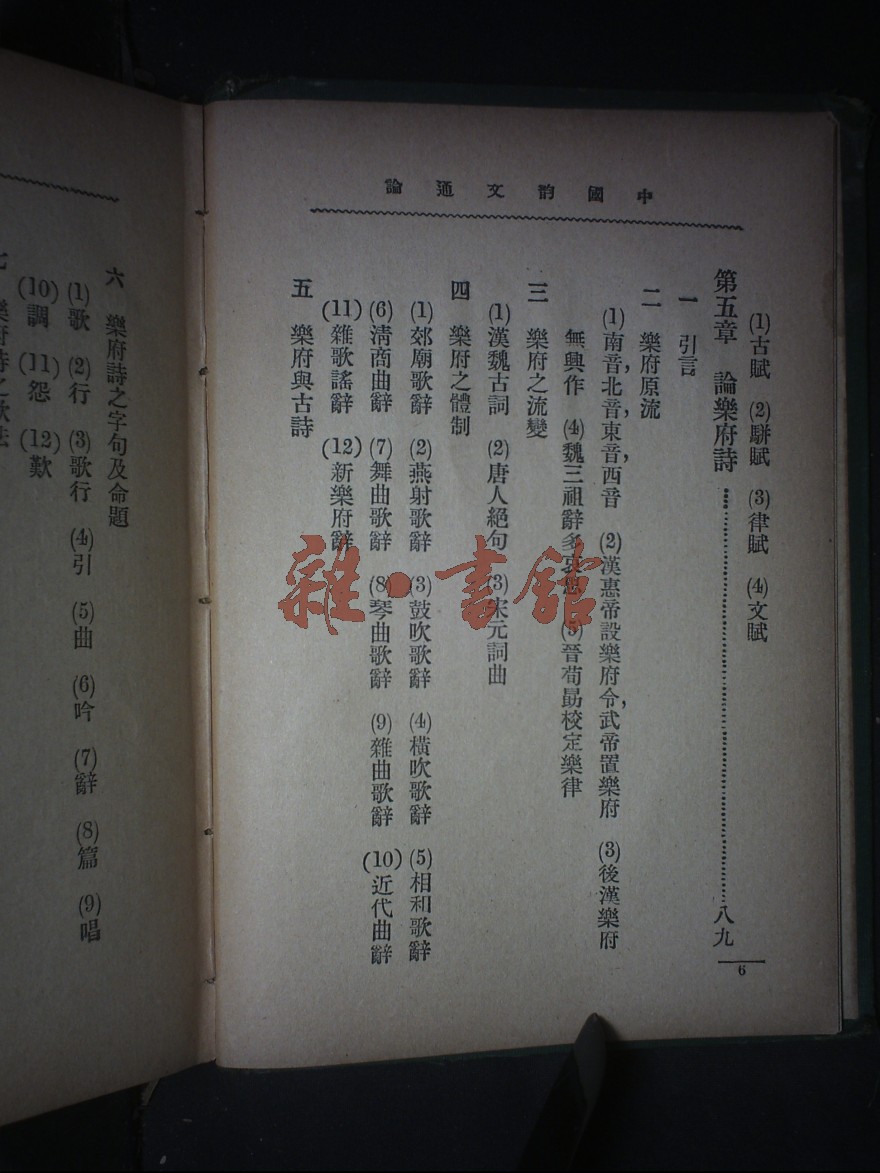 中國韵文通論
(1)古賦 (2)駢賦 (3)律賦 (4)文賦
第五章 論樂府詩……八九
一 引言
二 樂府原流
(1)南音,北音,東音,西音 (2)漢惠帝設樂府令,武帝置樂府 (3)後漢樂府
無興作 (4)魏三祖辭多哀思 (5)晉荀勗校定樂律
三 樂府之流變
(1)漢魏古詞 (2)唐人絕句 (3)宋元詞曲
四 樂府之體制
(1)郊廟歌辭 (2)燕射歌辭 (3)鼓吹歌辭 (4)橫吹歌辭 (5)相和歌辭
(6)淸商曲辭 (7)舞曲歌辭 (8)琴曲歌辭 (9)雜曲歌辭 (10)近代曲辭
(11)雜歌謠辭 (12)新樂府辭
五 樂府與古詩
6
六 樂府詩之字句及命題
(1)歌 (2)行 (3)歌行 (4)引 (5)曲 (6)吟 (7)辭 (8)篇 (9)唱
(10)調 (11)怨 (12)歎
七 樂府詩之
雜·書館